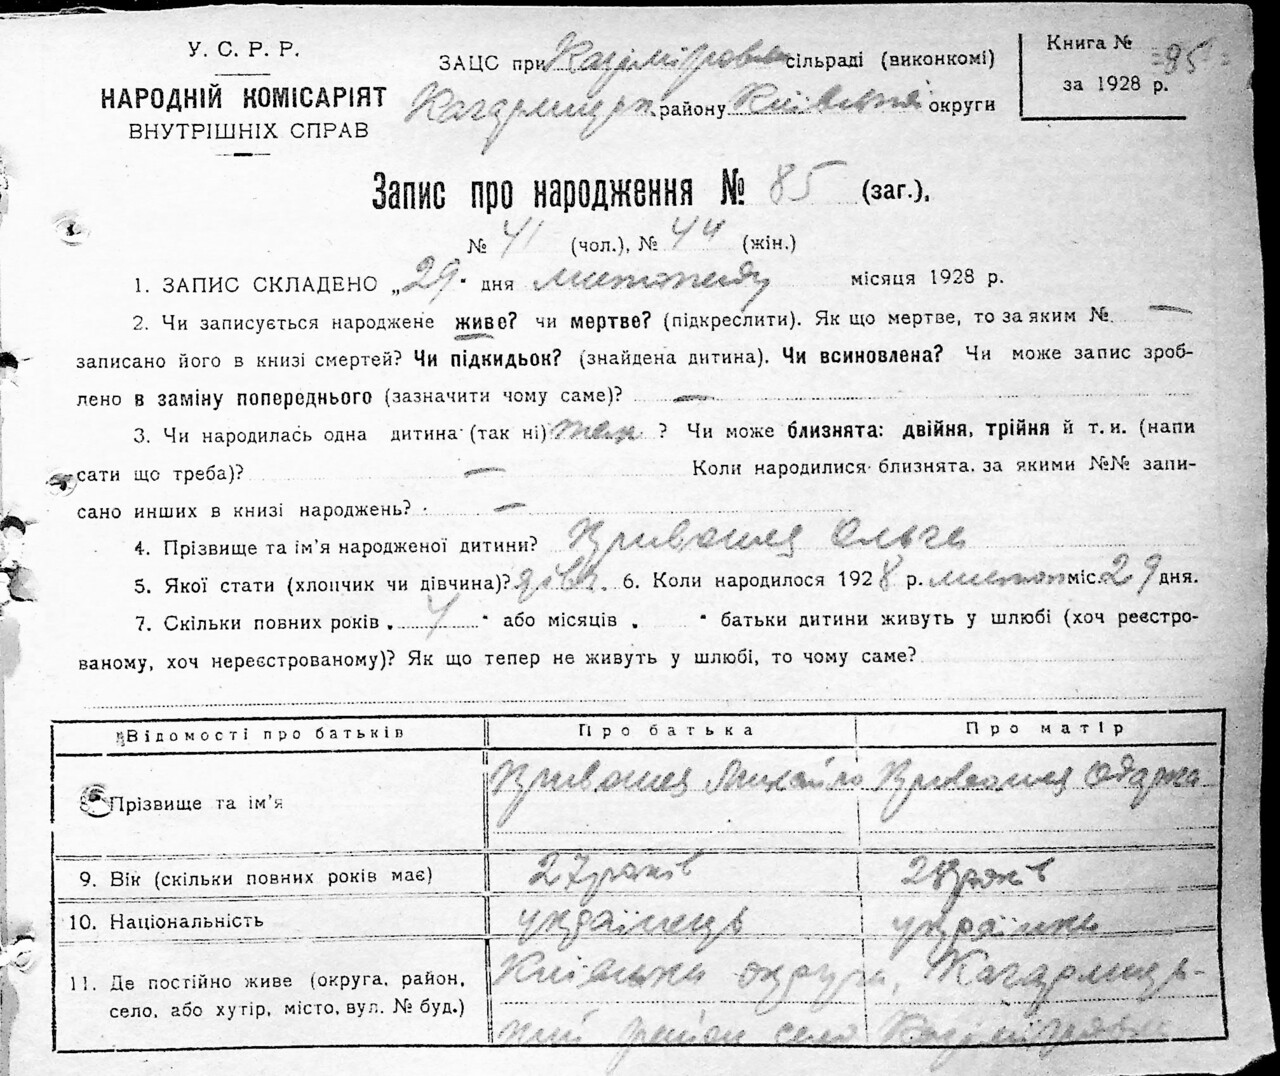 У. С. Р. Р.
НАРОДНІЙ КОМІСАРІЯТ
ВНУТРІШНІХ СПРАВ
ЗАЦС при Казіміровськ сільраді (виконкомі)
Кагарлицьк. району Київської округи
Книга № 95
за 1928 р.
Запис про народження № 85 (заг.),
№ 41 (чол.), № 44 (жін.)
1. ЗАПИС СКЛАДЕНО „29" дня листопаду місяця 1928 р.
2. Чи записується народжене живе? чи мертве? (підкреслити). Як що мертве, то за яким № —
записано його в книзі смертей? Чи підкидьок? (знайдена дитина). Чи всиновлена? Чи може запис зроб-
лено в заміну попереднього (зазначити чому саме)? —
3. Чи народилась одна дитина (так ні) так ? Чи може близнята: двійня, трійня й т. и. (напи
сати що треба)? — Коли народилися близнята. за якими №№ запи-
сано инших в книзі народжень? —
4. Прізвище та ім'я народженої дитини? Кривошея Ольга
5. Якої стати (хлопчик чи дівчина)? дівч. 6. Коли народилося 1928 р. листоп міс. 29 дня.
7. Скільки повних років „ 4 " або місяців „ " батьки дитини живуть у шлюбі (хоч реєстро-
ваному, хоч нереєстрованому)? Як що тепер не живуть у шлюбі, то чому саме?
Відомості про батьків Про батька Про матір
8. Прізвище та ім'я Кривошея Михайло Кривошея Одарка
9. Вік (скільки повних років має) 27 років 28 років
10. Національність українець українка
11. Де постійно живе (округа, район, Київська округа, Кагарлиць-
село, або хутір, місто, вул. № буд.) кий район село Казімірівка